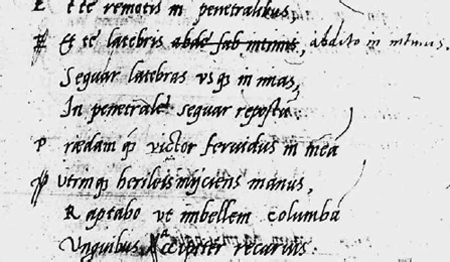 Et te remotis in penetralibus,
Et te latebris abde sub intimis, abdito in intimis.
Sequar latebras usq; in imas,
In penetrale sequar repostu.
Prædamq; victor feruidus in mea
Vtrinq; herileis inijciens manus,
Raptabo ut imbellem columbã
Vnguibus accipiter recuruis.